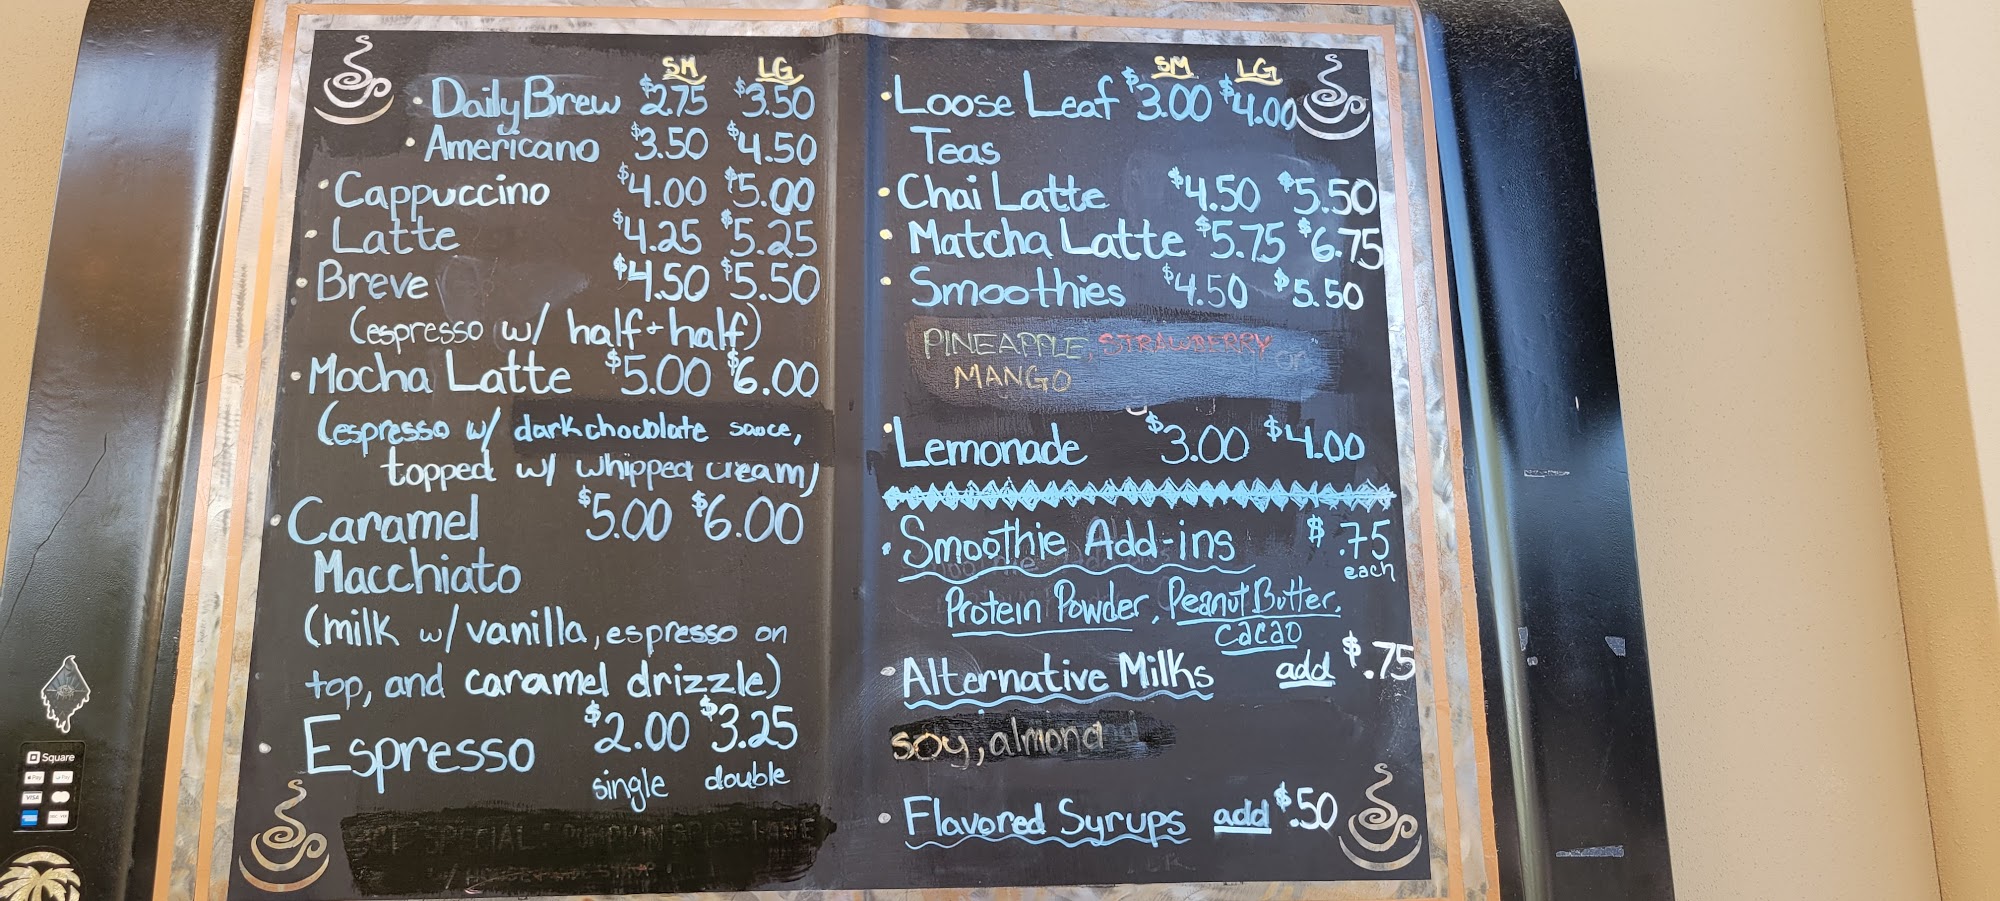 SM LG
• Daily Brew $2.75 $3.50
• Americano $3.50 $4.50
• Cappuccino $4.00 $5.00
• Latte $4.25 $5.25
• Breve $4.50 $5.50
(espresso w/ half + half)
• Mocha Latte $5.00 $6.00
(espresso w/ dark chocolate sauce,
topped w/ whipped cream)
• Caramel $5.00 $6.00
Macchiato
(milk w/ vanilla, espresso on
top, and caramel drizzle)
• Espresso $2.00 $3.25
single double
SPECIAL: PUMPKIN SPICE LATTE
SM LG
• Loose Leaf $3.00 $4.00
Teas
• Chai Latte $4.50 $5.50
• Matcha Latte $5.75 $6.75
• Smoothies $4.50 $5.50
PINEAPPLE, STRAWBERRY or
MANGO
• Lemonade $3.00 $4.00
• Smoothie Add-ins $.75
each
Protein Powder, Peanut Butter,
cacao
• Alternative Milks add $.75
soy, almond
• Flavored Syrups add $.50
Square
Pay
VISA